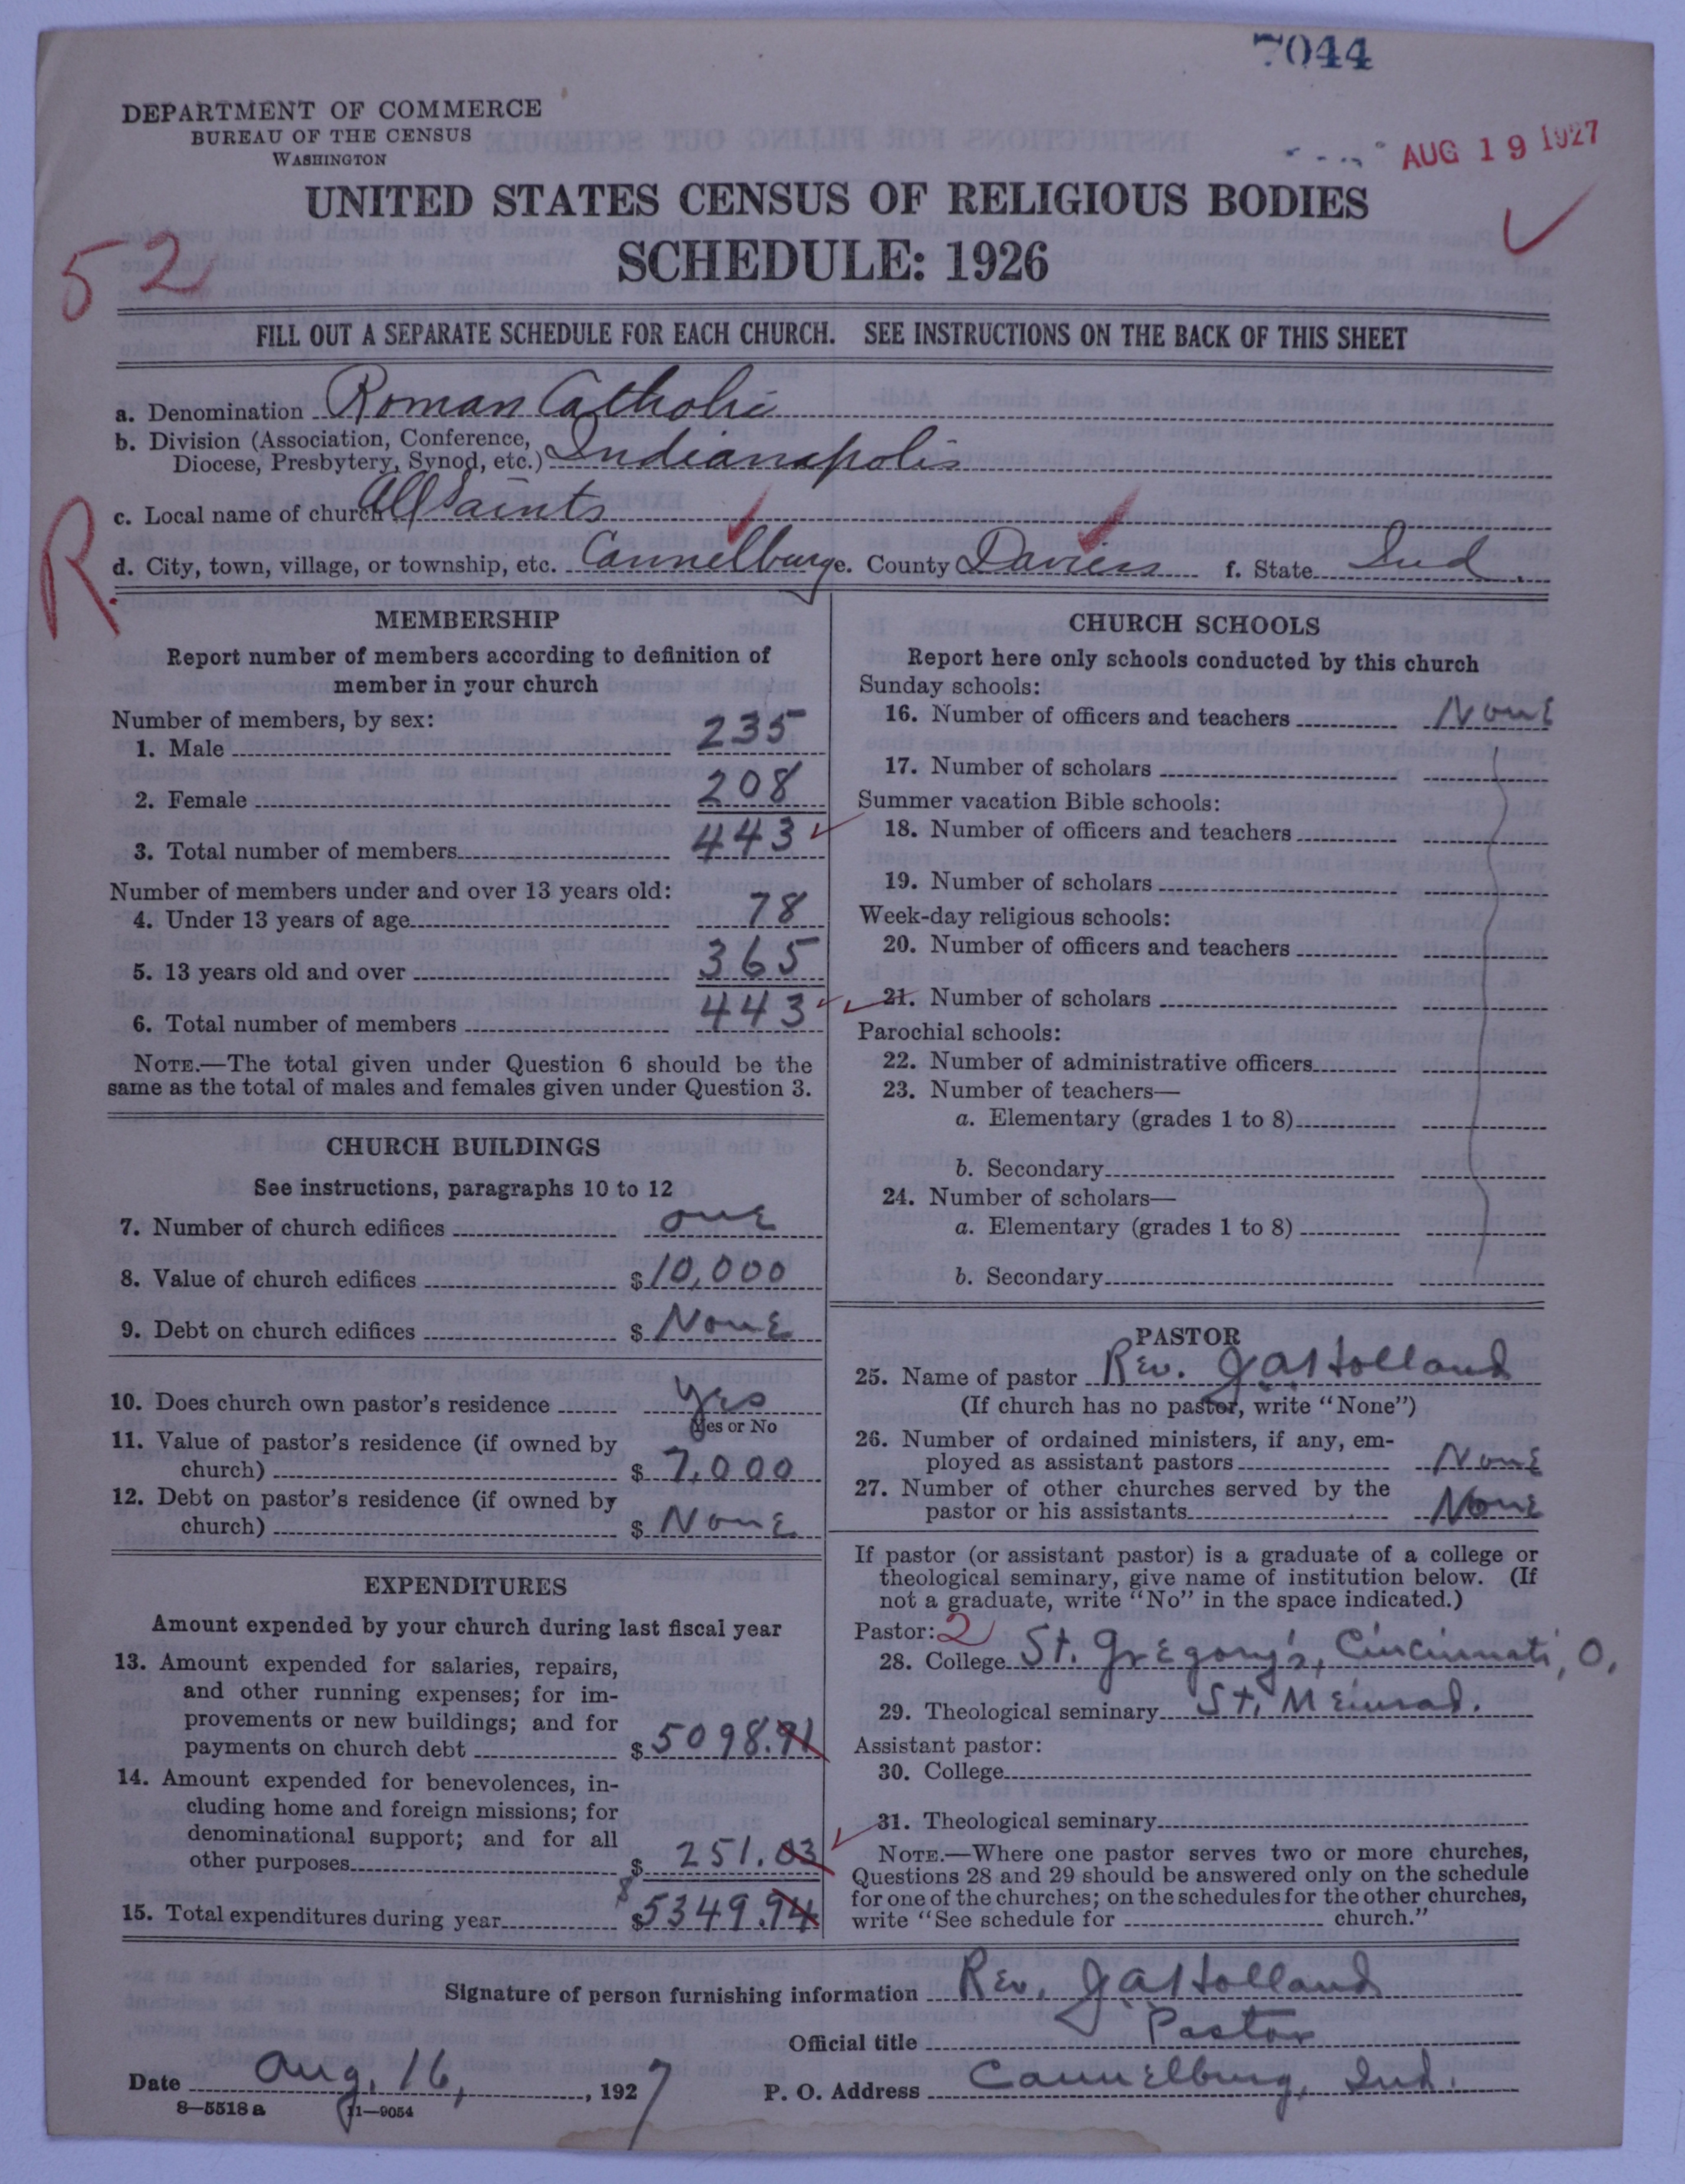 7044
DEPARTMENT OF COMMERCE
BUREAU OF THE CENSUS
WASHINGTON
AUG 19 1927
UNITED STATES CENSUS OF RELIGIOUS BODIES
SCHEDULE: 1926
52
FILL OUT A SEPARATE SCHEDULE FOR EACH CHURCH. SEE INSTRUCTIONS ON THE BACK OF THIS SHEET
a. Denomination Roman Catholic
b. Division (Association, Conference, Diocese, Presbytery, Synod, etc.) Indianapolis
R.
c. Local name of church All Saints
d. City, town, village, or township, etc. Cannelburg e. County Daviess f. State Ind.
MEMBERSHIP
Report number of members according to definition of
member in your church
Number of members, by sex:
1. Male 235
2. Female 208
3. Total number of members 443
Number of members under and over 13 years old:
4. Under 13 years of age 78
5. 13 years old and over 365
6. Total number of members 443
NOTE.—The total given under Question 6 should be the
same as the total of males and females given under Question 3.
CHURCH BUILDINGS
See instructions, paragraphs 10 to 12
7. Number of church edifices one
8. Value of church edifices $10,000
9. Debt on church edifices $ None
10. Does church own pastor's residence Yes
Yes or No
11. Value of pastor's residence (if owned by
church) $ 7,000
12. Debt on pastor's residence (if owned by
church) $ None
EXPENDITURES
Amount expended by your church during last fiscal year
13. Amount expended for salaries, repairs,
and other running expenses; for im-
provements or new buildings; and for
payments on church debt $ 5098.91
14. Amount expended for benevolences, in-
cluding home and foreign missions; for
denominational support; and for all
other purposes $ 251.03
15. Total expenditures during year $5349.94
CHURCH SCHOOLS
Report here only schools conducted by this church
Sunday schools:
16. Number of officers and teachers None
17. Number of scholars
Summer vacation Bible schools:
18. Number of officers and teachers
19. Number of scholars
Week-day religious schools:
20. Number of officers and teachers
21. Number of scholars
Parochial schools:
22. Number of administrative officers
23. Number of teachers—
a. Elementary (grades 1 to 8)
b. Secondary
24. Number of scholars—
a. Elementary (grades 1 to 8)
b. Secondary
PASTOR
25. Name of pastor Rev. J A Holland
(If church has no pastor, write "None")
26. Number of ordained ministers, if any, em-
ployed as assistant pastors None
27. Number of other churches served by the
pastor or his assistants None
If pastor (or assistant pastor) is a graduate of a college or
theological seminary, give name of institution below. (If
not a graduate, write "No" in the space indicated.)
Pastor: 2
28. College St. Gregory's, Cincinnati, O.
29. Theological seminary St. Meinrad.
Assistant pastor:
30. College
31. Theological seminary
NOTE.—Where one pastor serves two or more churches,
Questions 28 and 29 should be answered only on the schedule
for one of the churches; on the schedules for the other churches,
write "See schedule for church."
Signature of person furnishing information Rev. J A Holland
Official title Pastor
Date Aug. 16, 1927 P. O. Address Cannelburg, Ind.
8—5518 a 11—9054